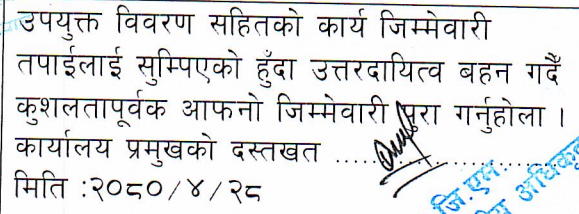 उपयुक्त विवरण सहितको कार्य जिम्मेवारी
तपाईलाई सुम्पिएको हुँदा उत्तरदायित्व बहन गर्दै
कुशलतापूर्वक आफनो जिम्मेवारी पुरा गर्नुहोला ।
कार्यालय प्रमुखको दस्तखत ........................
मिति :२०८०/४/२८
जि.एम.
अधिकृत